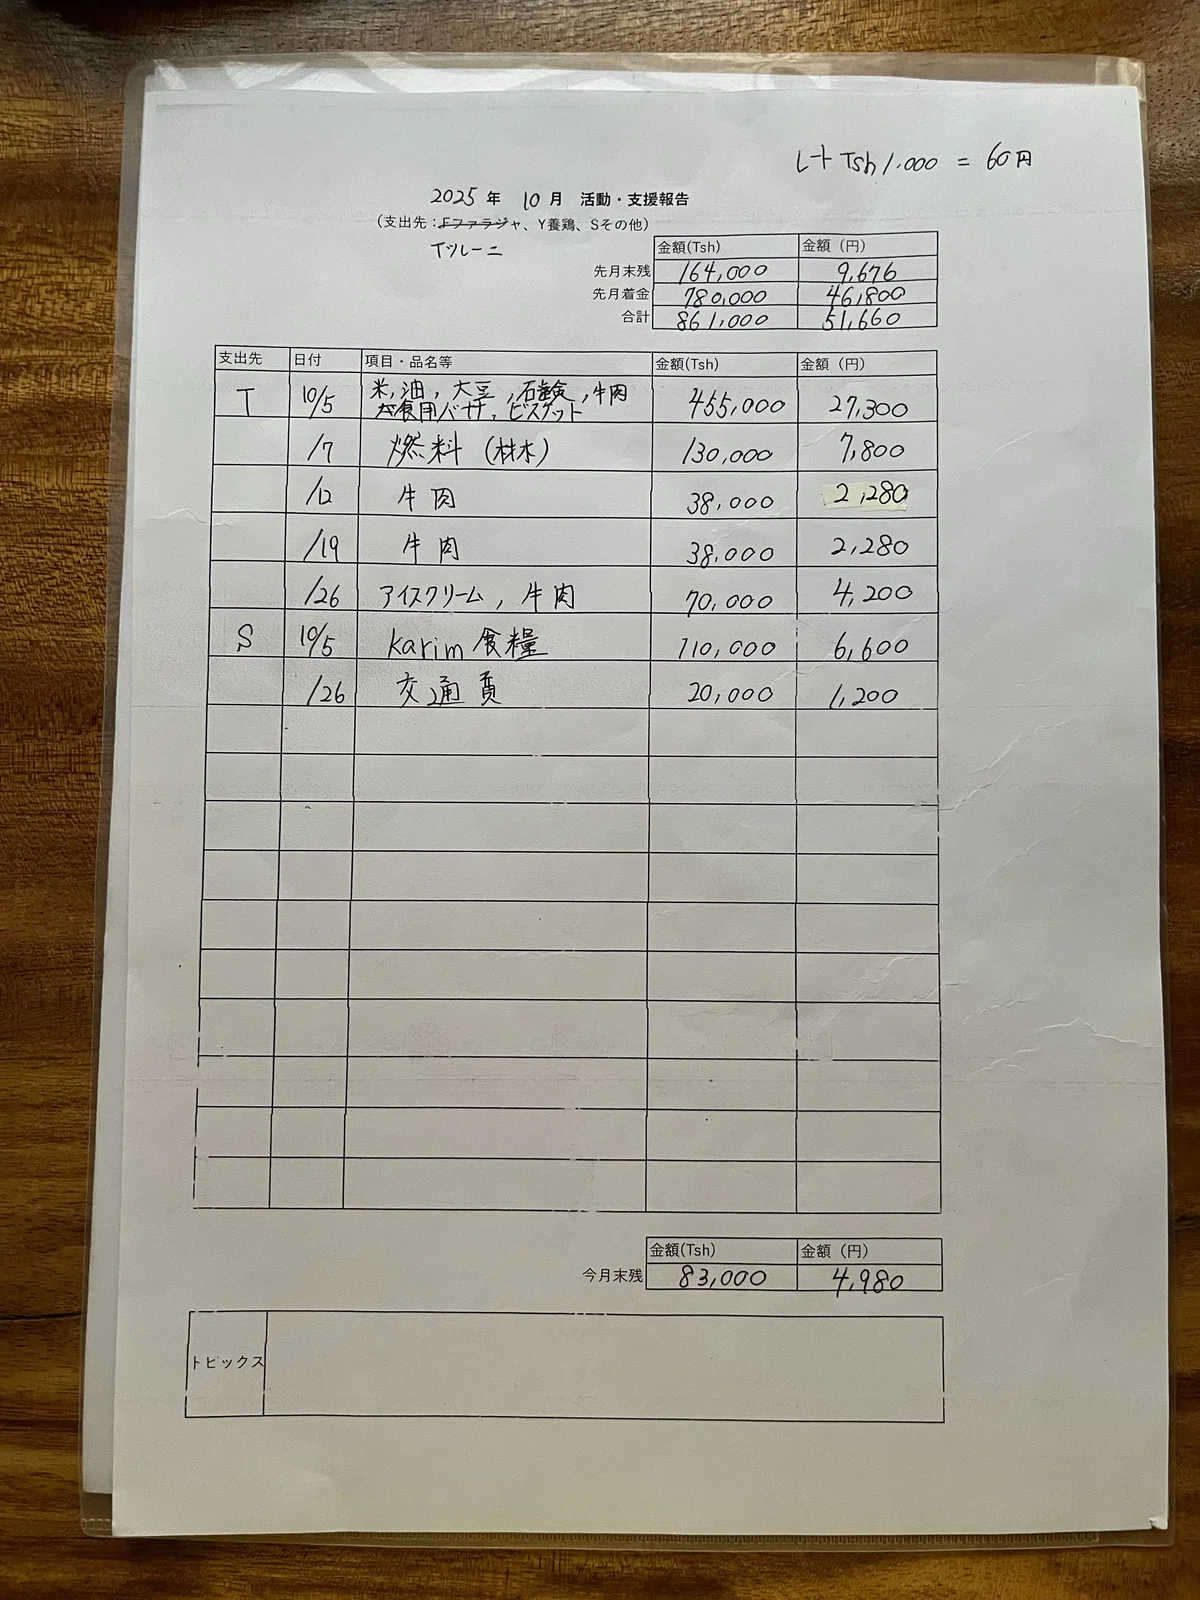 レート Tsh 1.000 = 60円
2025 年 10 月 活動・支援報告
（支出先：Fファラジャ、Y養鶏、Sその他）
Tツレーニ
金額(Tsh) 金額（円）
先月末残 164,000 9,676
先月着金 780,000 46,800
合計 861,000 51,660
支出先 日付 項目・品名等 金額(Tsh) 金額（円）
T 10/5 米, 油, 大豆, 石鹸, 牛肉 455,000 27,300
食用バナナ, ビスケット
/7 燃料 (材木) 130,000 7,800
/12 牛肉 38,000 2,280
/19 牛肉 38,000 2,280
/26 アイスクリーム, 牛肉 70,000 4,200
S 10/5 Karim 食糧 110,000 6,600
/26 交通費 20,000 1,200
金額(Tsh) 金額（円）
今月末残 83,000 4,980
トピックス